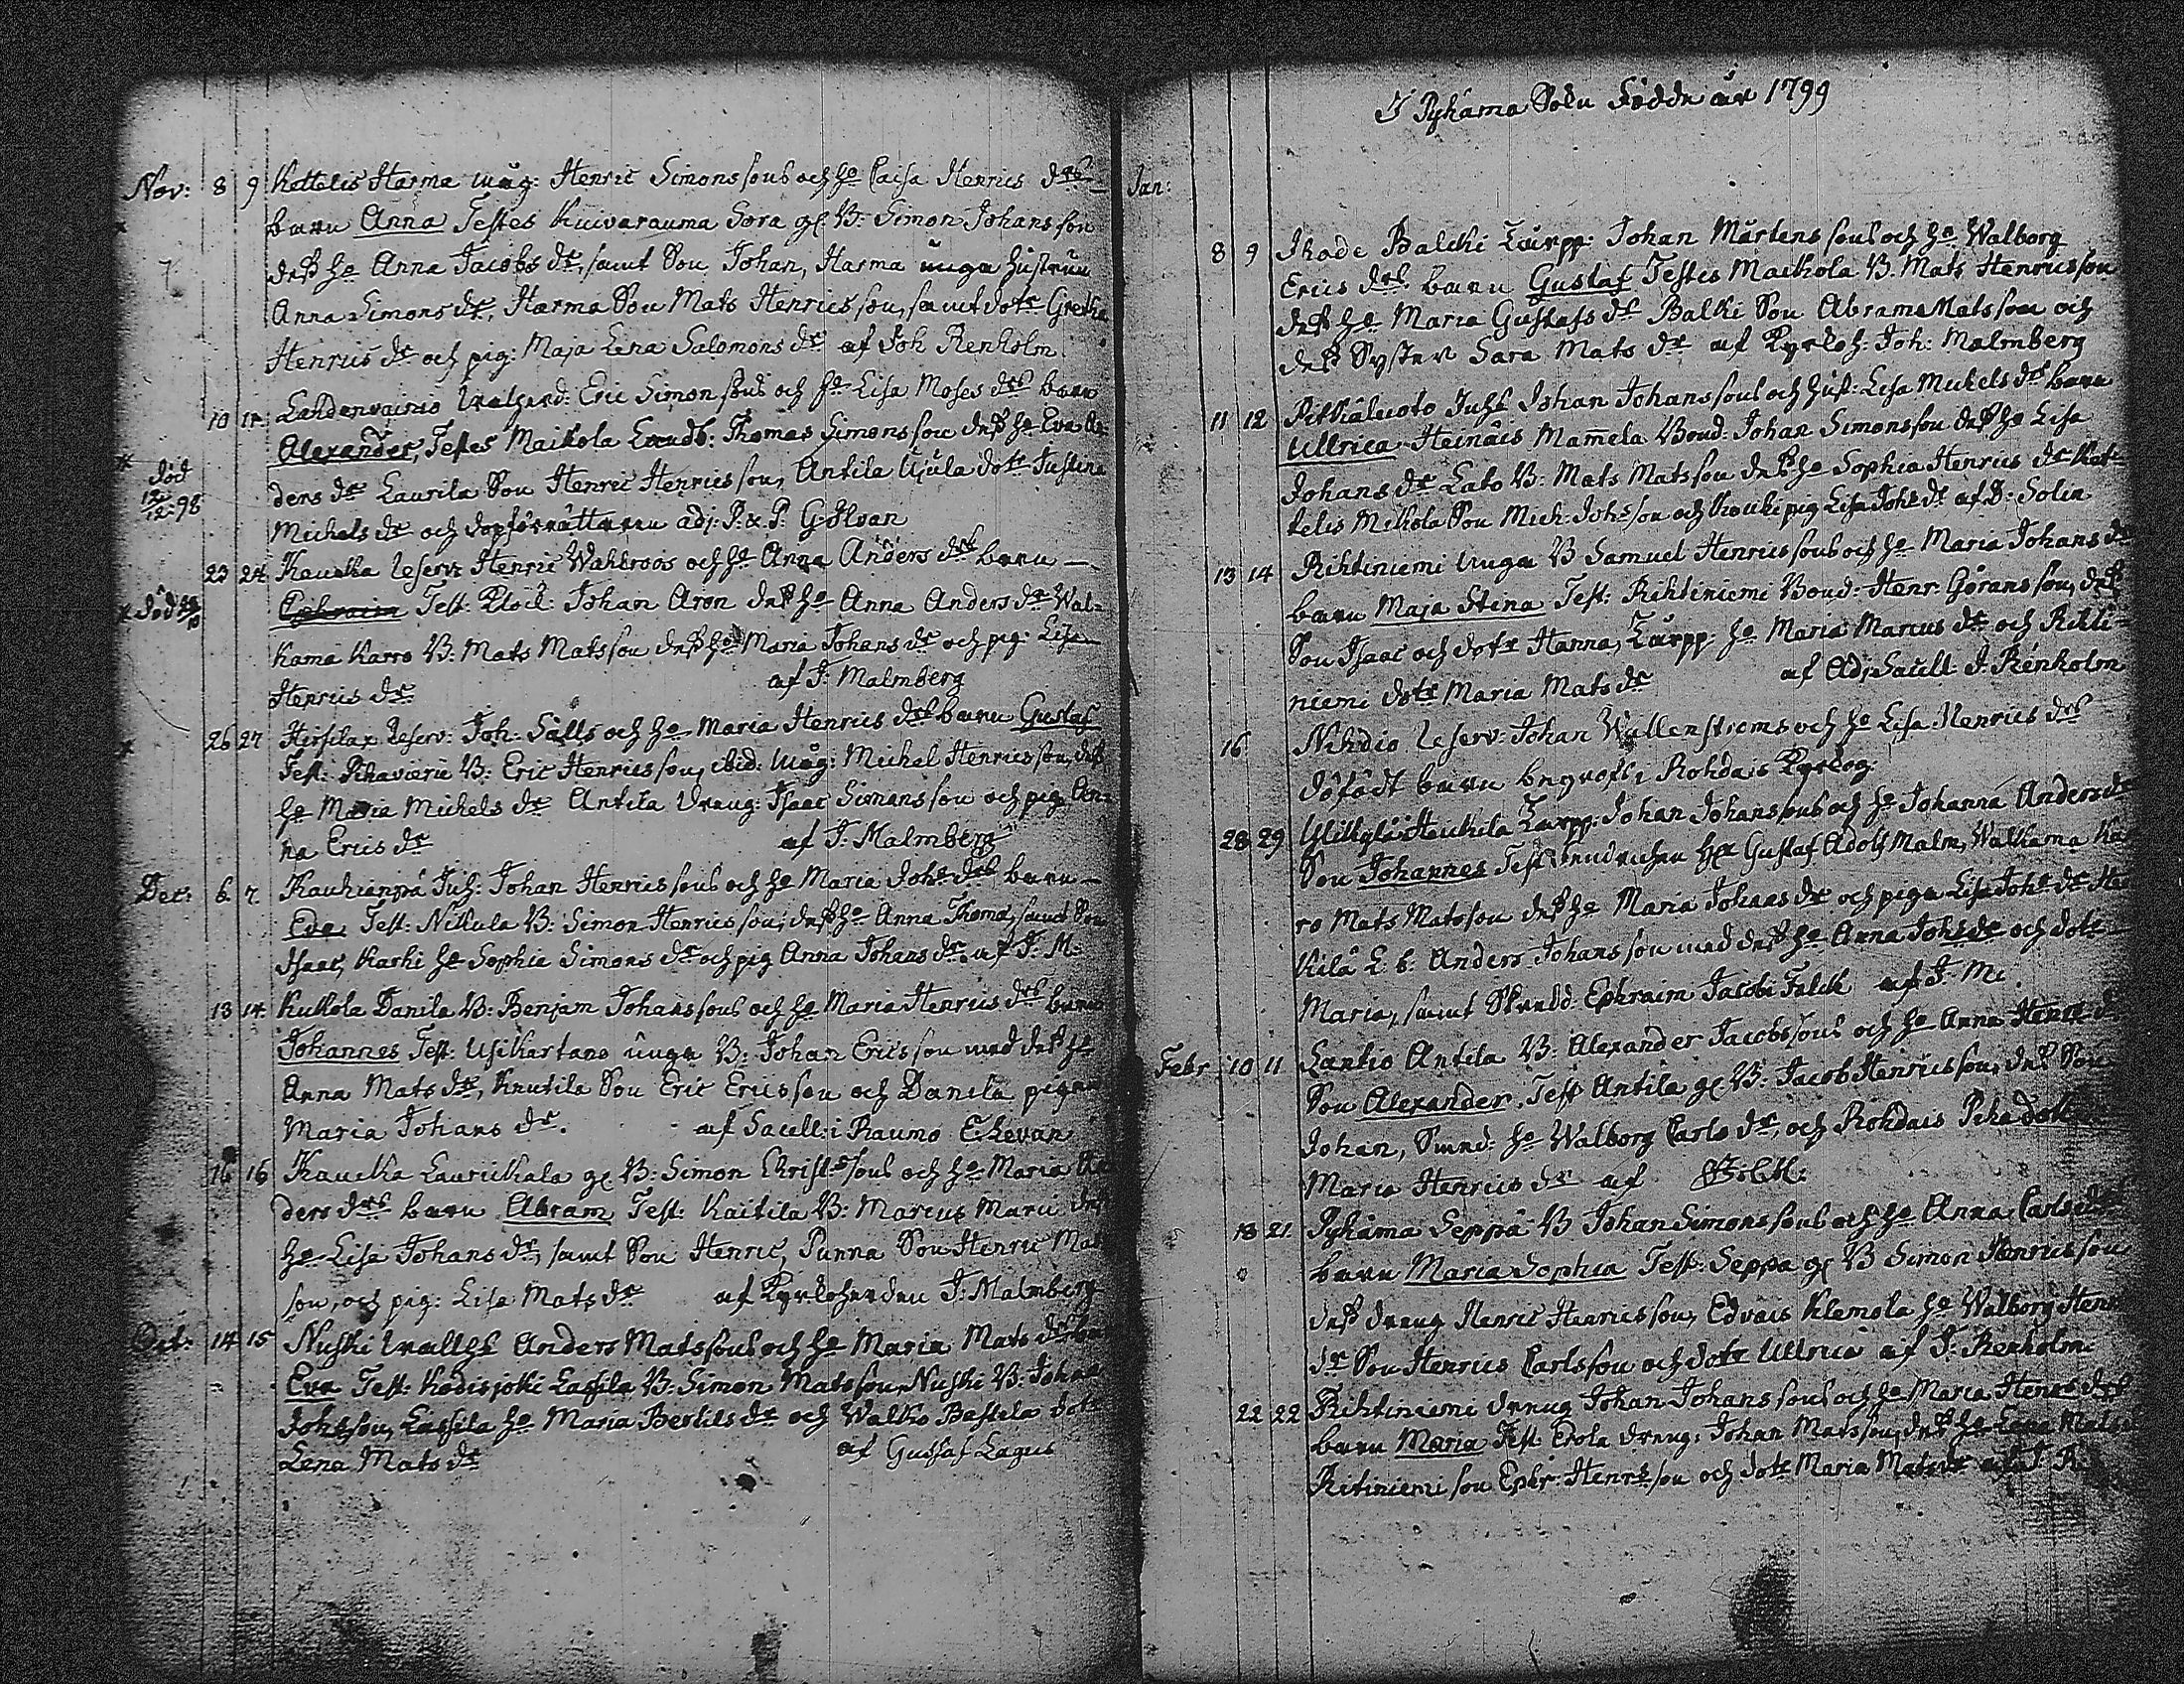 Nov: 8 9 Kettelis Harma måg: Henric Simonssons och ho Caisa Henrics drs
barn Anna Testes Kuivarauma Sora gl B: Simon Johansson
dess ho Anna Jacobs dr, samt Son Johan, Harma unga hustrun
Anna Simons dr, Harma Son Mats Henricsson, samt dotr Gretha
Henrics dr och pig: Maja Lena Salomons dr af Joh Renholm
10 11 Lahdenvainio Eric Simonsons och ho Lisa Moses drs barn
Alexander, Testes Maikola Landb: Thomas Simonsson dess ho Eva An-
död 12/12 98 ders dr Laurila Son Henric Henricsson, Antila dotr Justina
Michels dr och dopförrättaren adj: P. & P: G:
23 24 Kauckka Reserv Henric Wahlroos och ho Anna Anders drs barn —
död Ephraim Test: Klock: Johan Aron dess ho Anna Anders dr Wal-
kama Karro B: Mats Matsson dess ho Maria Johans dr och pig: Lisa
Henrics dr af J: Malmberg
26 27 Hirsilax Reserv: Joh: Sälls och ho Maria Henrics drs barn Gustaf
Test: Pihavieru B: Eric Henricsson, ibid: måg: Michel Henricsson, dess
ho Maria Michels dr Antila dreng: Isaac Simonsson och pig An-
na Erics dr af J: Malmberg
Dec: 6 7 Kauhianpä Inh: Johan Henricssons och ho Maria Johs drs barn —
Eva Test: Nikula B: Simon Henricsson, dess ho Anna Thoma, samt Son
Isaac, Karhi ho Sophia Simons dr och pig Anna Johans dr af J: M:
13 14 Kukola Danila B: Benjam Johanssons och ho Maria Henrics drs barn
Johannes Test: Usikartano unga B: Johan Ericsson med dess ho
Anna Mats dr, Knutila Son Eric Ericsson och Danila pigan
Maria Johans dr. af Sacell: i Raumo E: Levan
16 16 Kauckka Laurickala gl B: Simon Christssons och ho Maria An
ders drs barn Abram Test: Kaitila B: Marcus Marci dess
ho Lisa Johans dr, samt Son Henric, Punna Son Henric Mats
son, och pig: Lisa Mats dr af Kyrkoherden J: Malmberg
Oct: 14 15 Nuhki Anders Matssons och ho Maria Mats drs barn
Eva Test: Kodisjoki Lassila B: Simon Matsson, Nuhki B: Johan
Johsson, Lassila ho Maria Bertils dr och Walko Bastela dotr
Lena Mats dr af Gustaf Lagus
I Pyhäma Sokn födde år 1799
Jan:
8 9 Ihode Balcki Torpp: Johan Mårtens sons och ho Walborg
Erics drs barn Gustaf Testes Maikola B: Mats Henricsson
dess ho Maria Gustafs dr Balki Son Abram Matsson och
dess Syster Sara Mats dr af Kyrkoh: Joh: Malmberg
11 12 Pitkäluoto Inhs Johan Johanssons och hust: Lisa Michels drs barn
Ullrica Heinäis Mamela Bond: Johan Simonsson dess ho Lisa
Johans dr Lato B: Mats Matsson dess ho Sophia Henrics dr Ket-
telis Mikola Son Mich: Johsson och pig Lisa Johs dr af D: Solin
13 14 Rihtiniemi unga B Samuel Henricssons och ho Maria Johans drs
barn Maja Stina Test: Rihtiniemi Bond: Henr: Göransson, dess
Son Isaac och dotr Hanna, Torpp: ho Maria Marcus dr och Rihti-
niemi dotr Maria Mats dr af Adj: Sacell: J: Renholm
16 Nihdio Reserv: Johan Wallenstroms och ho Lisa Henrics drs
döfödt barn begrofs i Rohdais Kyrkog:
28 29 Heickila Torpp: Johan Johanssons och ho Johanna Anders drs
Son Johannes Test: Gustaf Adolf Malm, Walkama Kar
ro Mats Matsson dess ho Maria Johans dr och pigan Lisa Johs dr Hei
kilä L: B: Anders Johansson med dess ho Anna Johs dr och dotr
Maria, samt Skredd: Ephraim Jacobs Falck af J: M:
Febr: 10 11 Lantio Antila B: Alexander Jacobssons och ho Anna Henrs d
Son Alexander. Test Antila gl B: Jacob Henricsson, dess Son
Johan, Smed: ho Walborg Carls dr, och Rohdais Piha dotr
Maria Henrics dr af
18 21 Pyhäma Seppä B Johan Simonssons och ho Anna Carls drs
barn Maria Sophia Test: Seppä gl B Simon Henricsson
dess dreng Henric Henricsson, Edvais Klemola ho Walborg Henr
dr Son Henrics Carlsson och dotr Ullrica af J: Renholm
22 22 Rihtiniemi dreng Johan Johanssons och ho Maria Henrs drs
barn Maria Test: Erola dreng: Johan Matsson, dess ho Lena Mats
Ritiniemi son Ephr: Henrsson och dotr Maria Mats dr af J: R